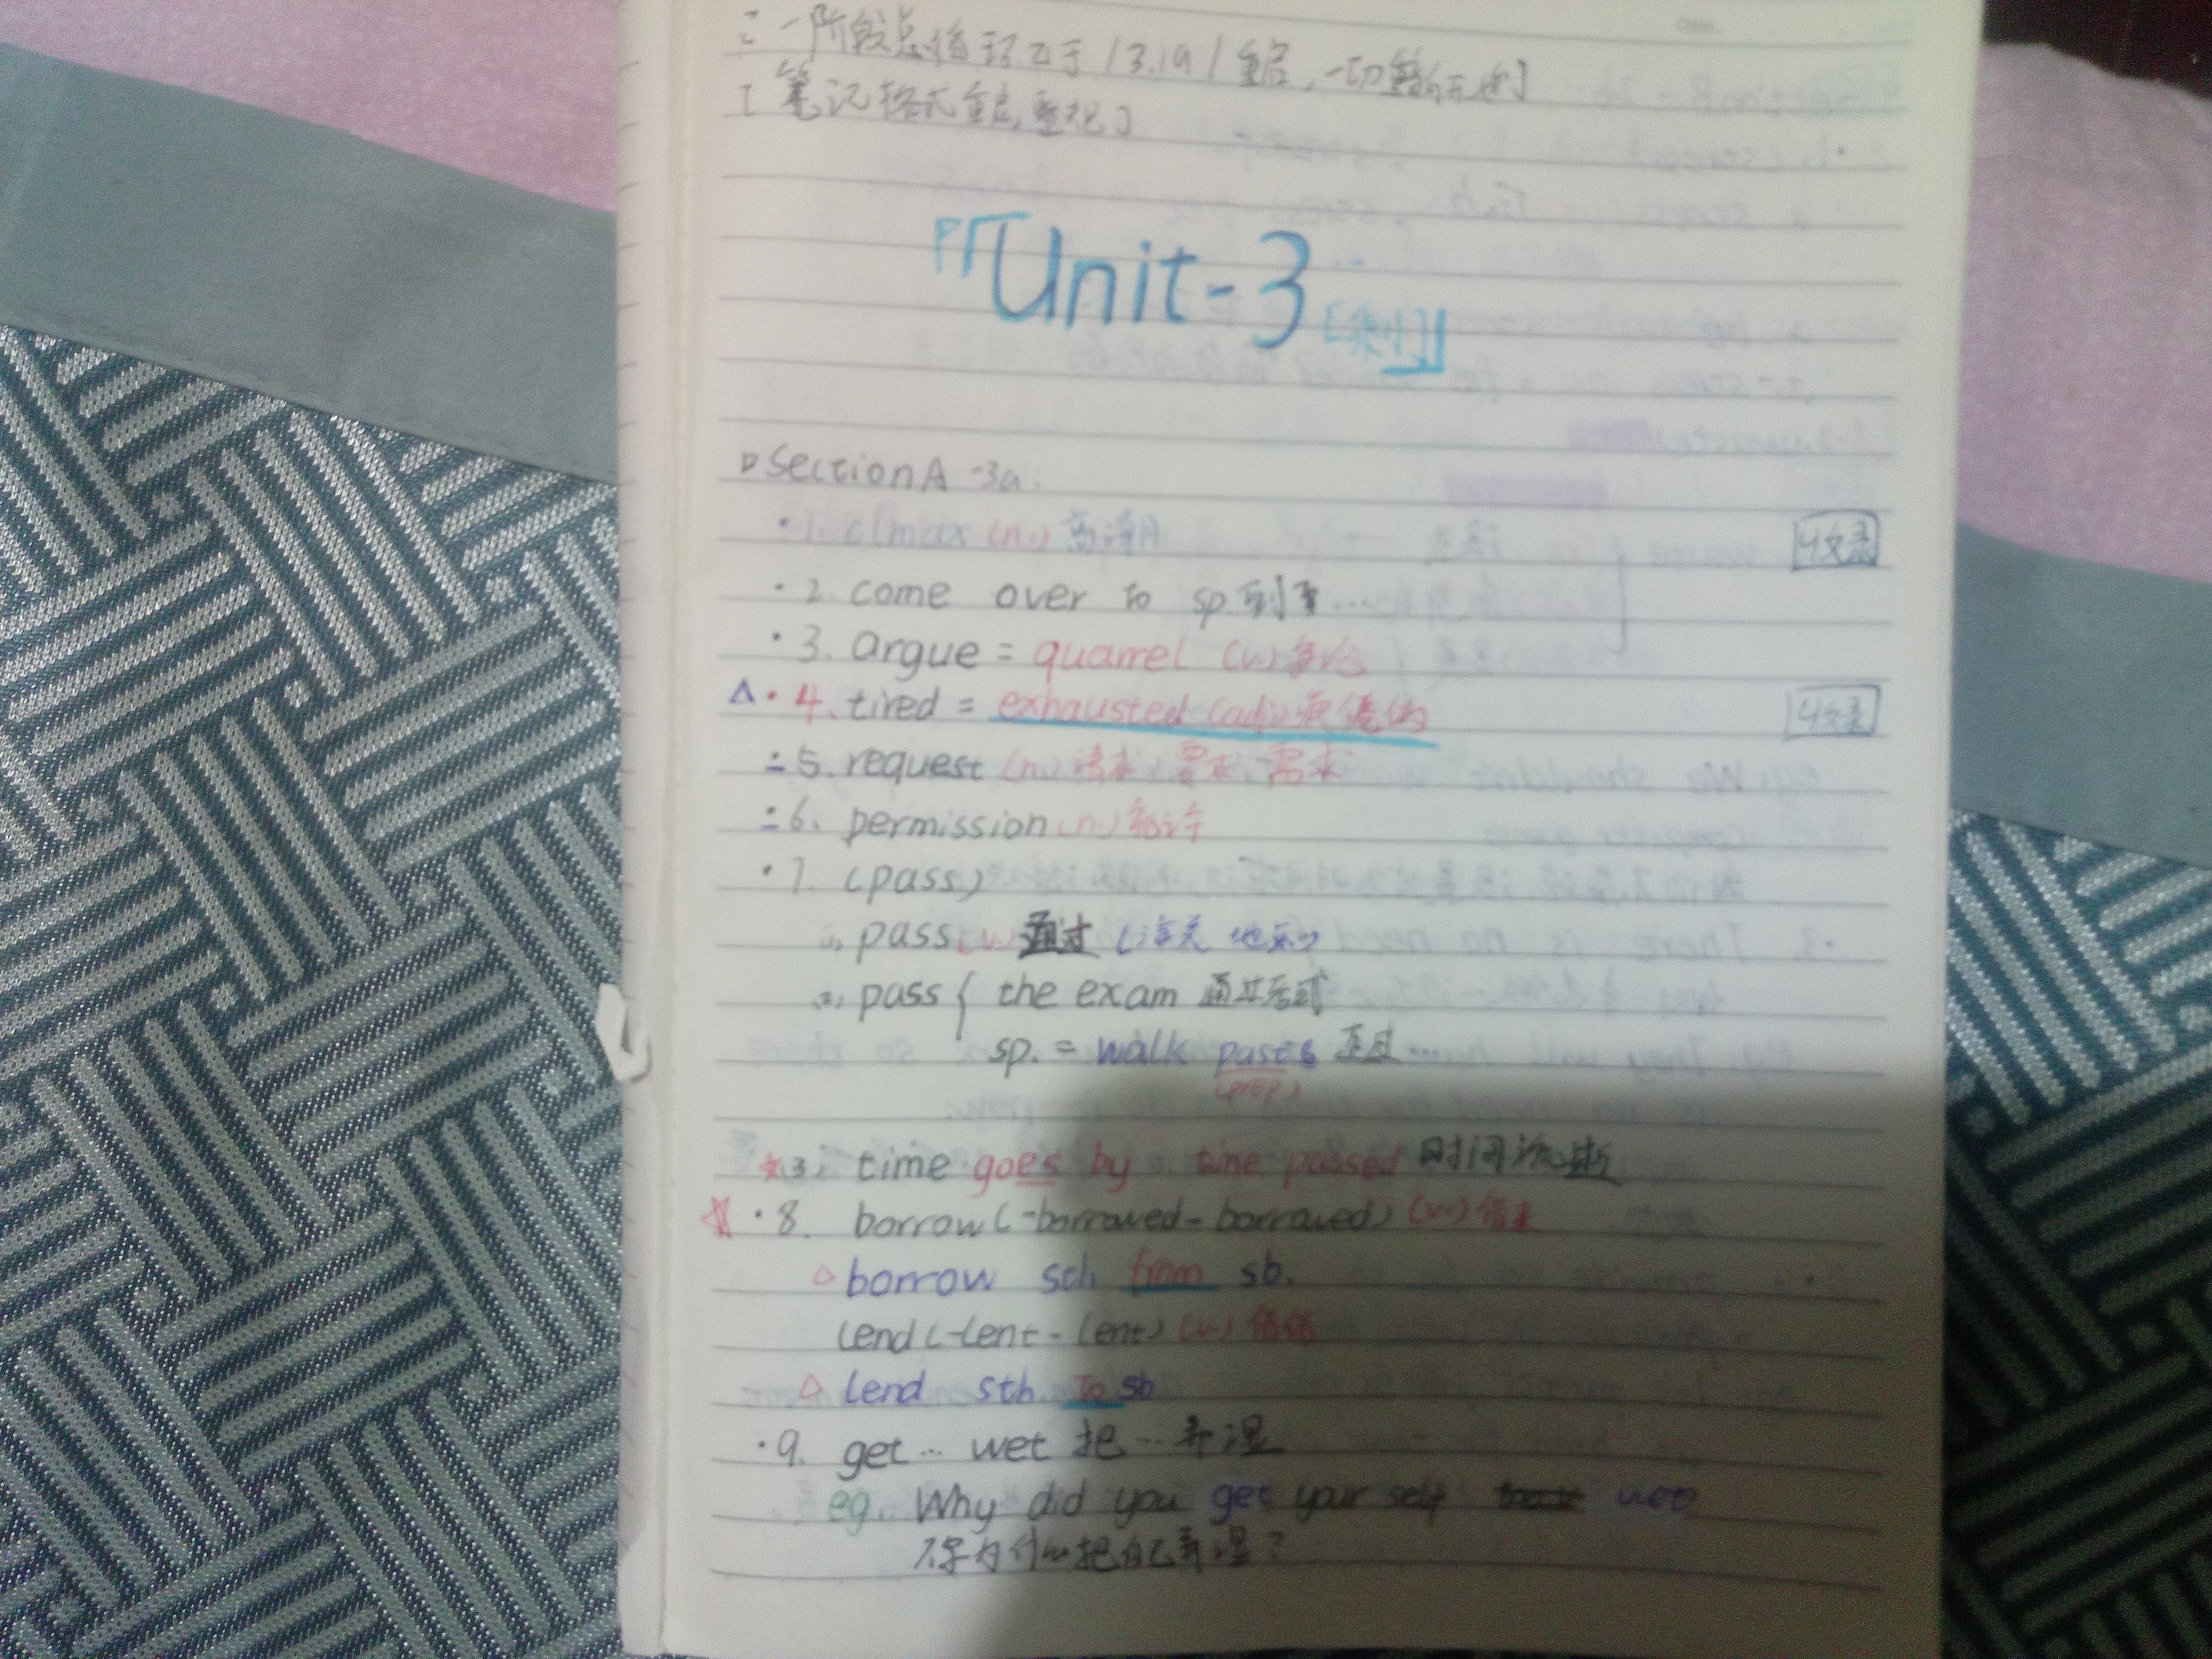 一阶段总结已于13.19/重启,一切
[笔记格式重启,重视]
『「Unit-3
▷Section A -3a:
·1. climax (n.) 高潮 收录
·2. come over to sp. 到...
·3. argue = quarrel (v.) 争论
△·4. tired = exhausted (adj.) 疲倦的 收录
·5. request (n.) 请求,要求,需求
·6. permission (n.) 允许
·7. (pass)
(1) pass (v.) 通过 (海关 地点)
(2) pass { the exam 通过考试
sp. = walk past 走过...
(prep)
3. time goes by time passed 时间流逝
☆·8. borrow (-borrowed-borrowed) (v.) 借来
△borrow sth from sb.
lend (-lent-lent) (v.) 借给
△ lend sth to sb
·9. get ... wet 把...弄湿
eg. Why did you get your self wet
你为什么把自己弄湿?